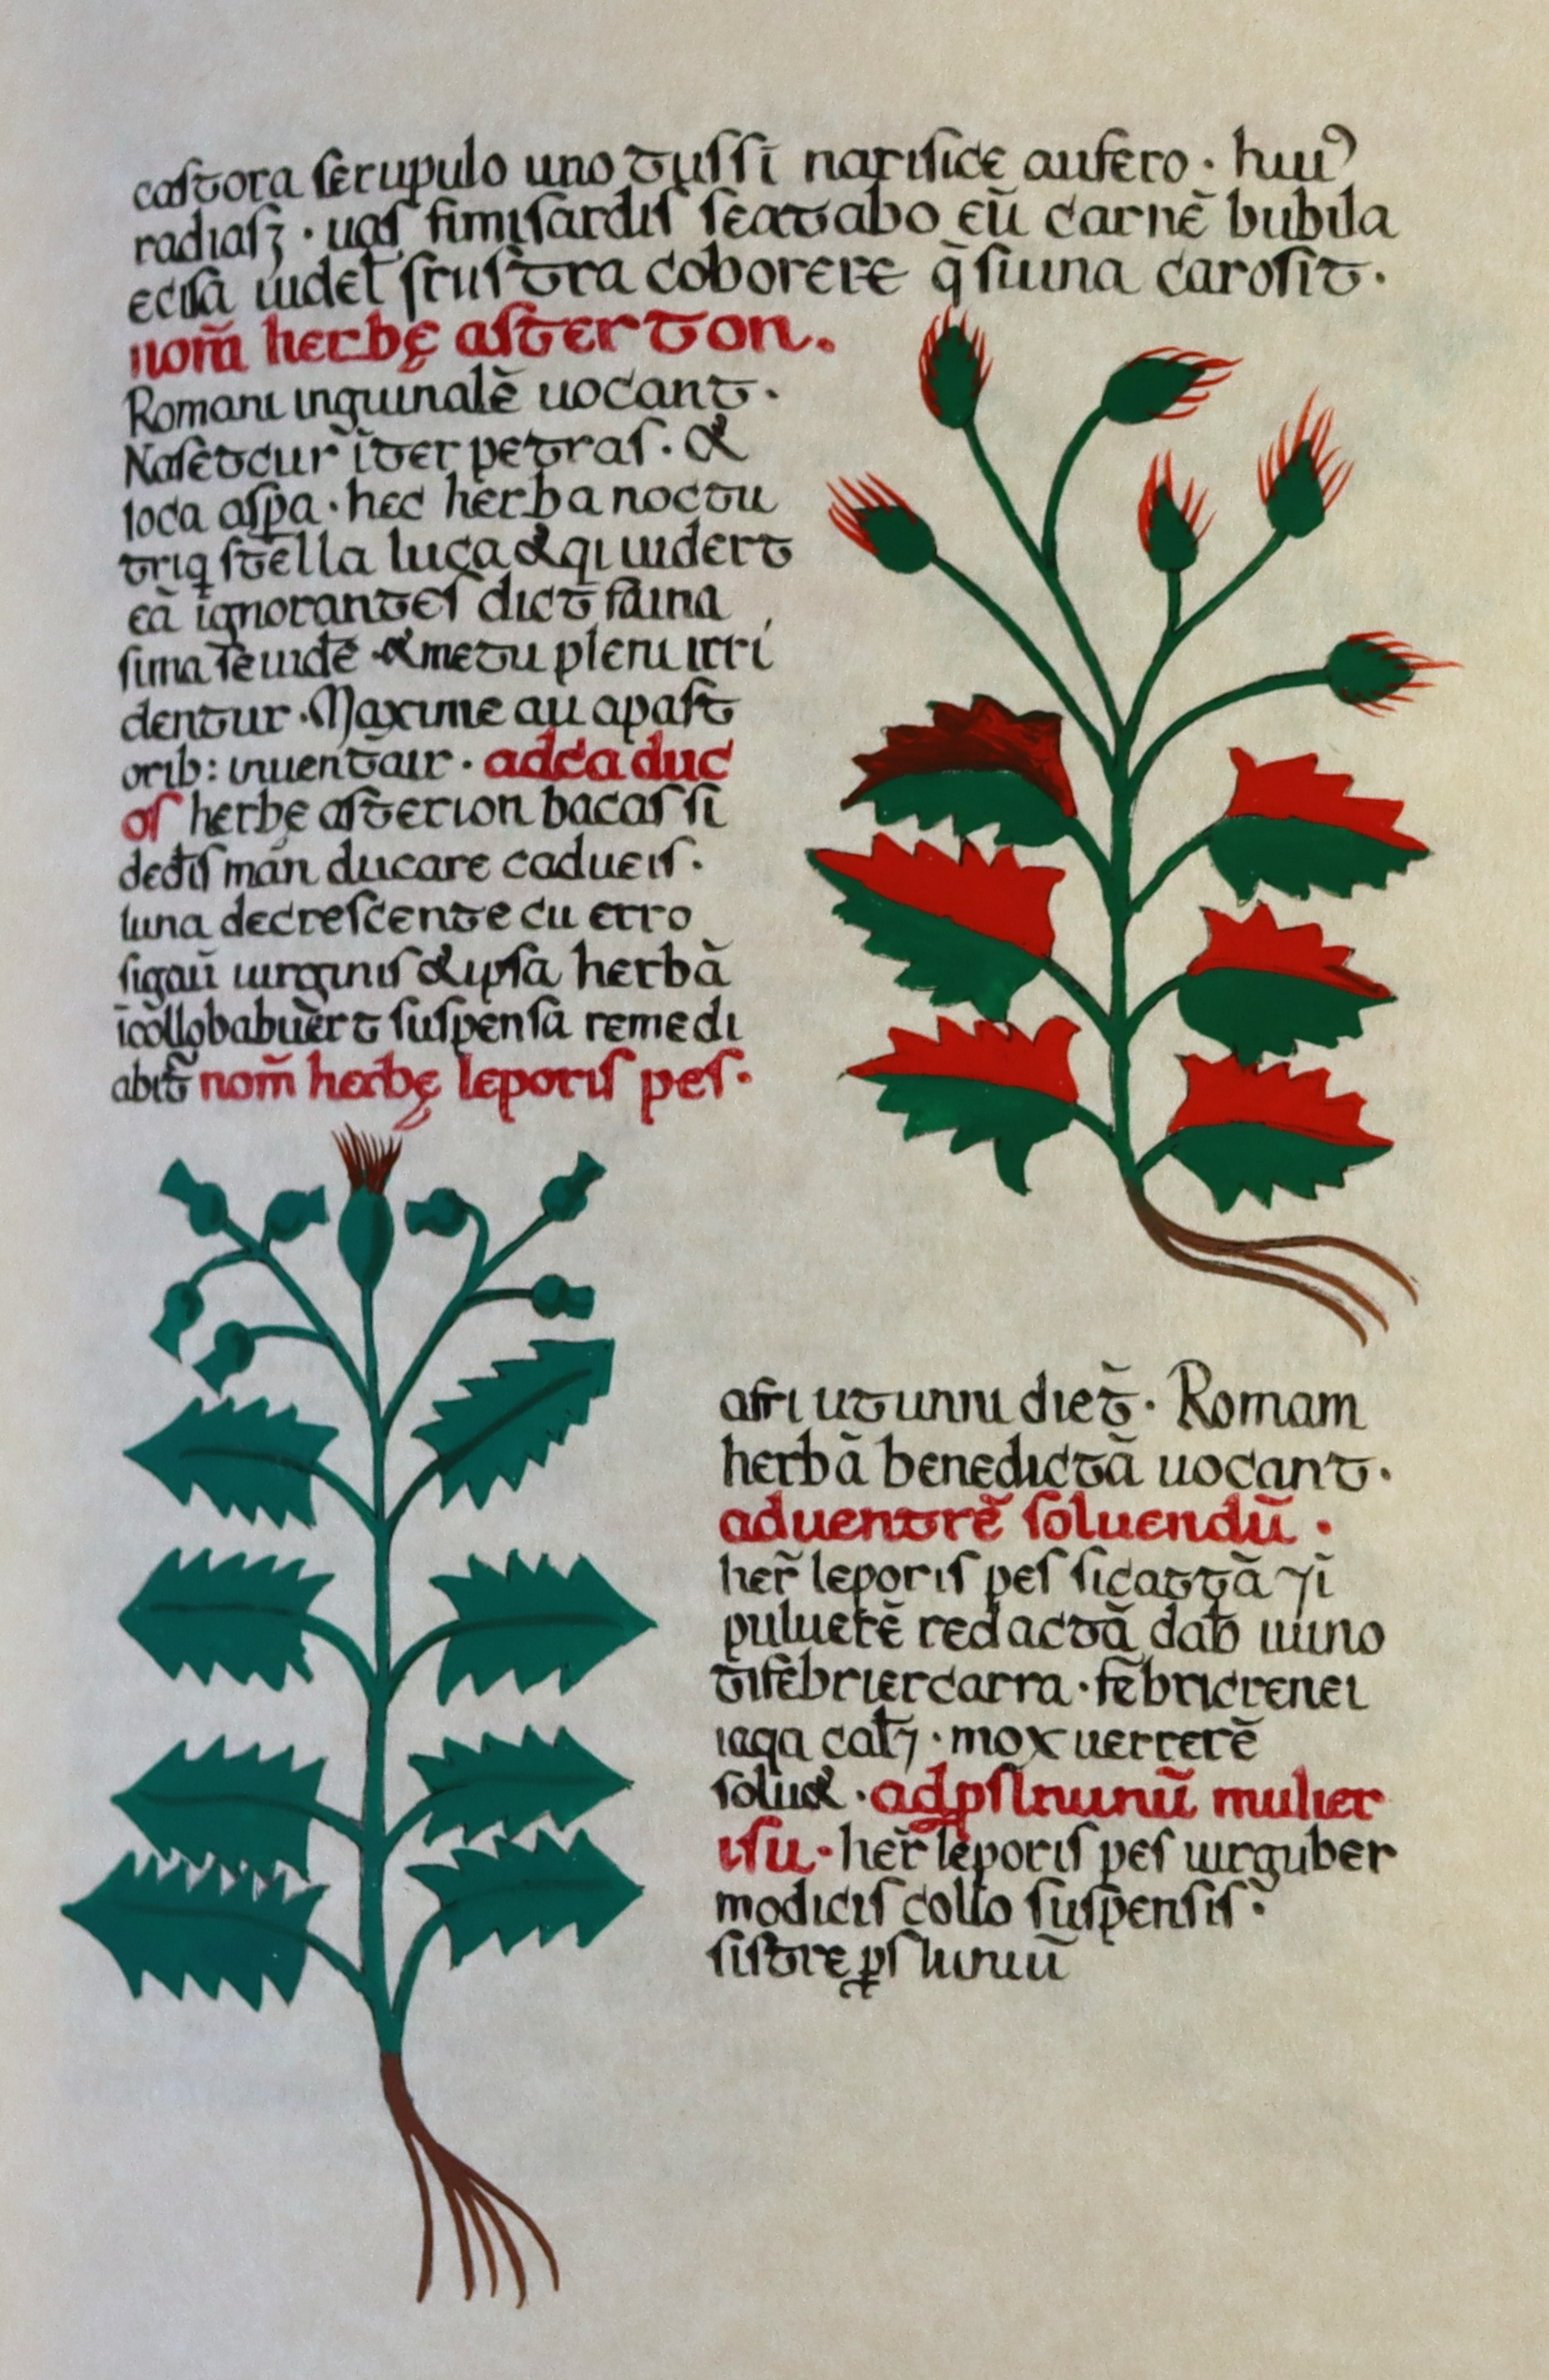 castora serupulo uno tussi narisice aufero · huiꝰ
radiasꝫ · uas fimisardis seatabo eū carnē bubila
ecisa uidet frustra coborere q̄ suuina carosit ·
nom̄ herbę asterton.
Romani inguinalē uocant ·
Nasetcur īter petras · &
loca aspa · hec herba noctu
triq stella luca & qi uidert
eā ignorantes dict̄ faina
sima se uidē & metu pleni irri
dentur · Maxime au apast
orib: inuentair · adcaduc
os herbę asterion bacas si
dedis man ducare cadueis ·
luna decrescente cu erro
sigaū uirginis & ipsa herbā
icollobabuert suspensa remedi
abit̄ nom̄ herbę leporis pes ·
afri ut unni diet̄ · Romam
herbā benedictā uocant ·
aduentrē soluendū ·
her̄ leporis pes sicattā ⁊ī
puluerē redactā dab uino
t̄ifēbriercarra · fēbricrenei
iaqa cat⁊ · mox uerrerē
solu& · adpslnunū mulier
isu · her̄ leporis pes uirguber
modicis collo suspensis ·
sistre ꝑs luniuū